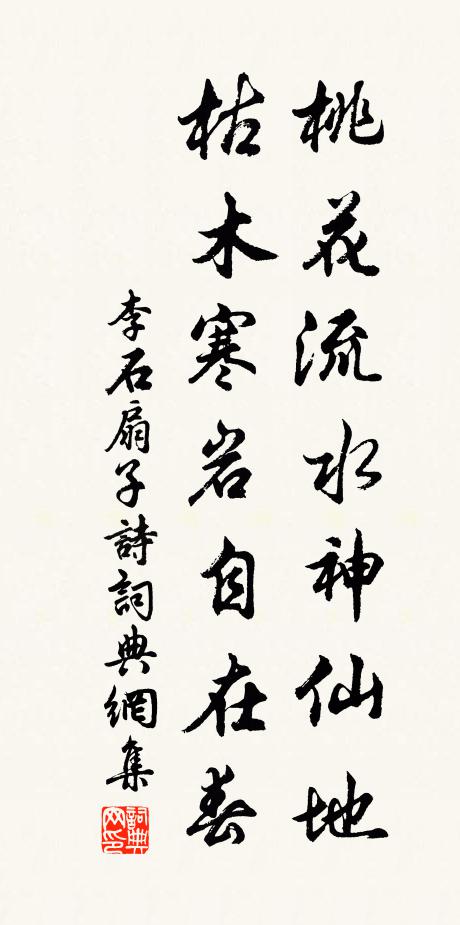 桃花流水神仙地
枯木寒岩自在春
李石扇子詩詞典網集
詞典网印